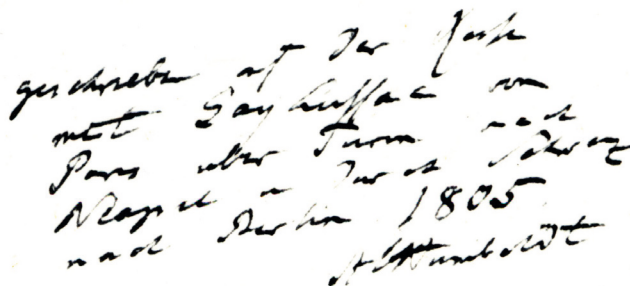 geschrieben auf der Reise
mit Gay Lussac von
Paris über Turin nach
Neapel u durch Schweiz
nach Berlin 1805
AlHumboldt